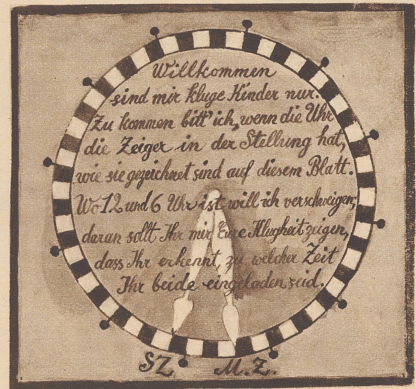 Willkommen
sind mir kluge Kinder nur.
Zu kommen bitt' ich, wenn die Uhr
die Zeiger in der Stellung hat,
wie sie gezeichnet sind auf diesem Blatt.
Wo 12 und 6 Uhr ist, will ich verschweigen,
daran sollt Ihr mir Eure Klugheit zeigen,
dass Ihr erkennt, zu welcher Zeit
Ihr beide eingeladen seid.
SZ. M.Z.